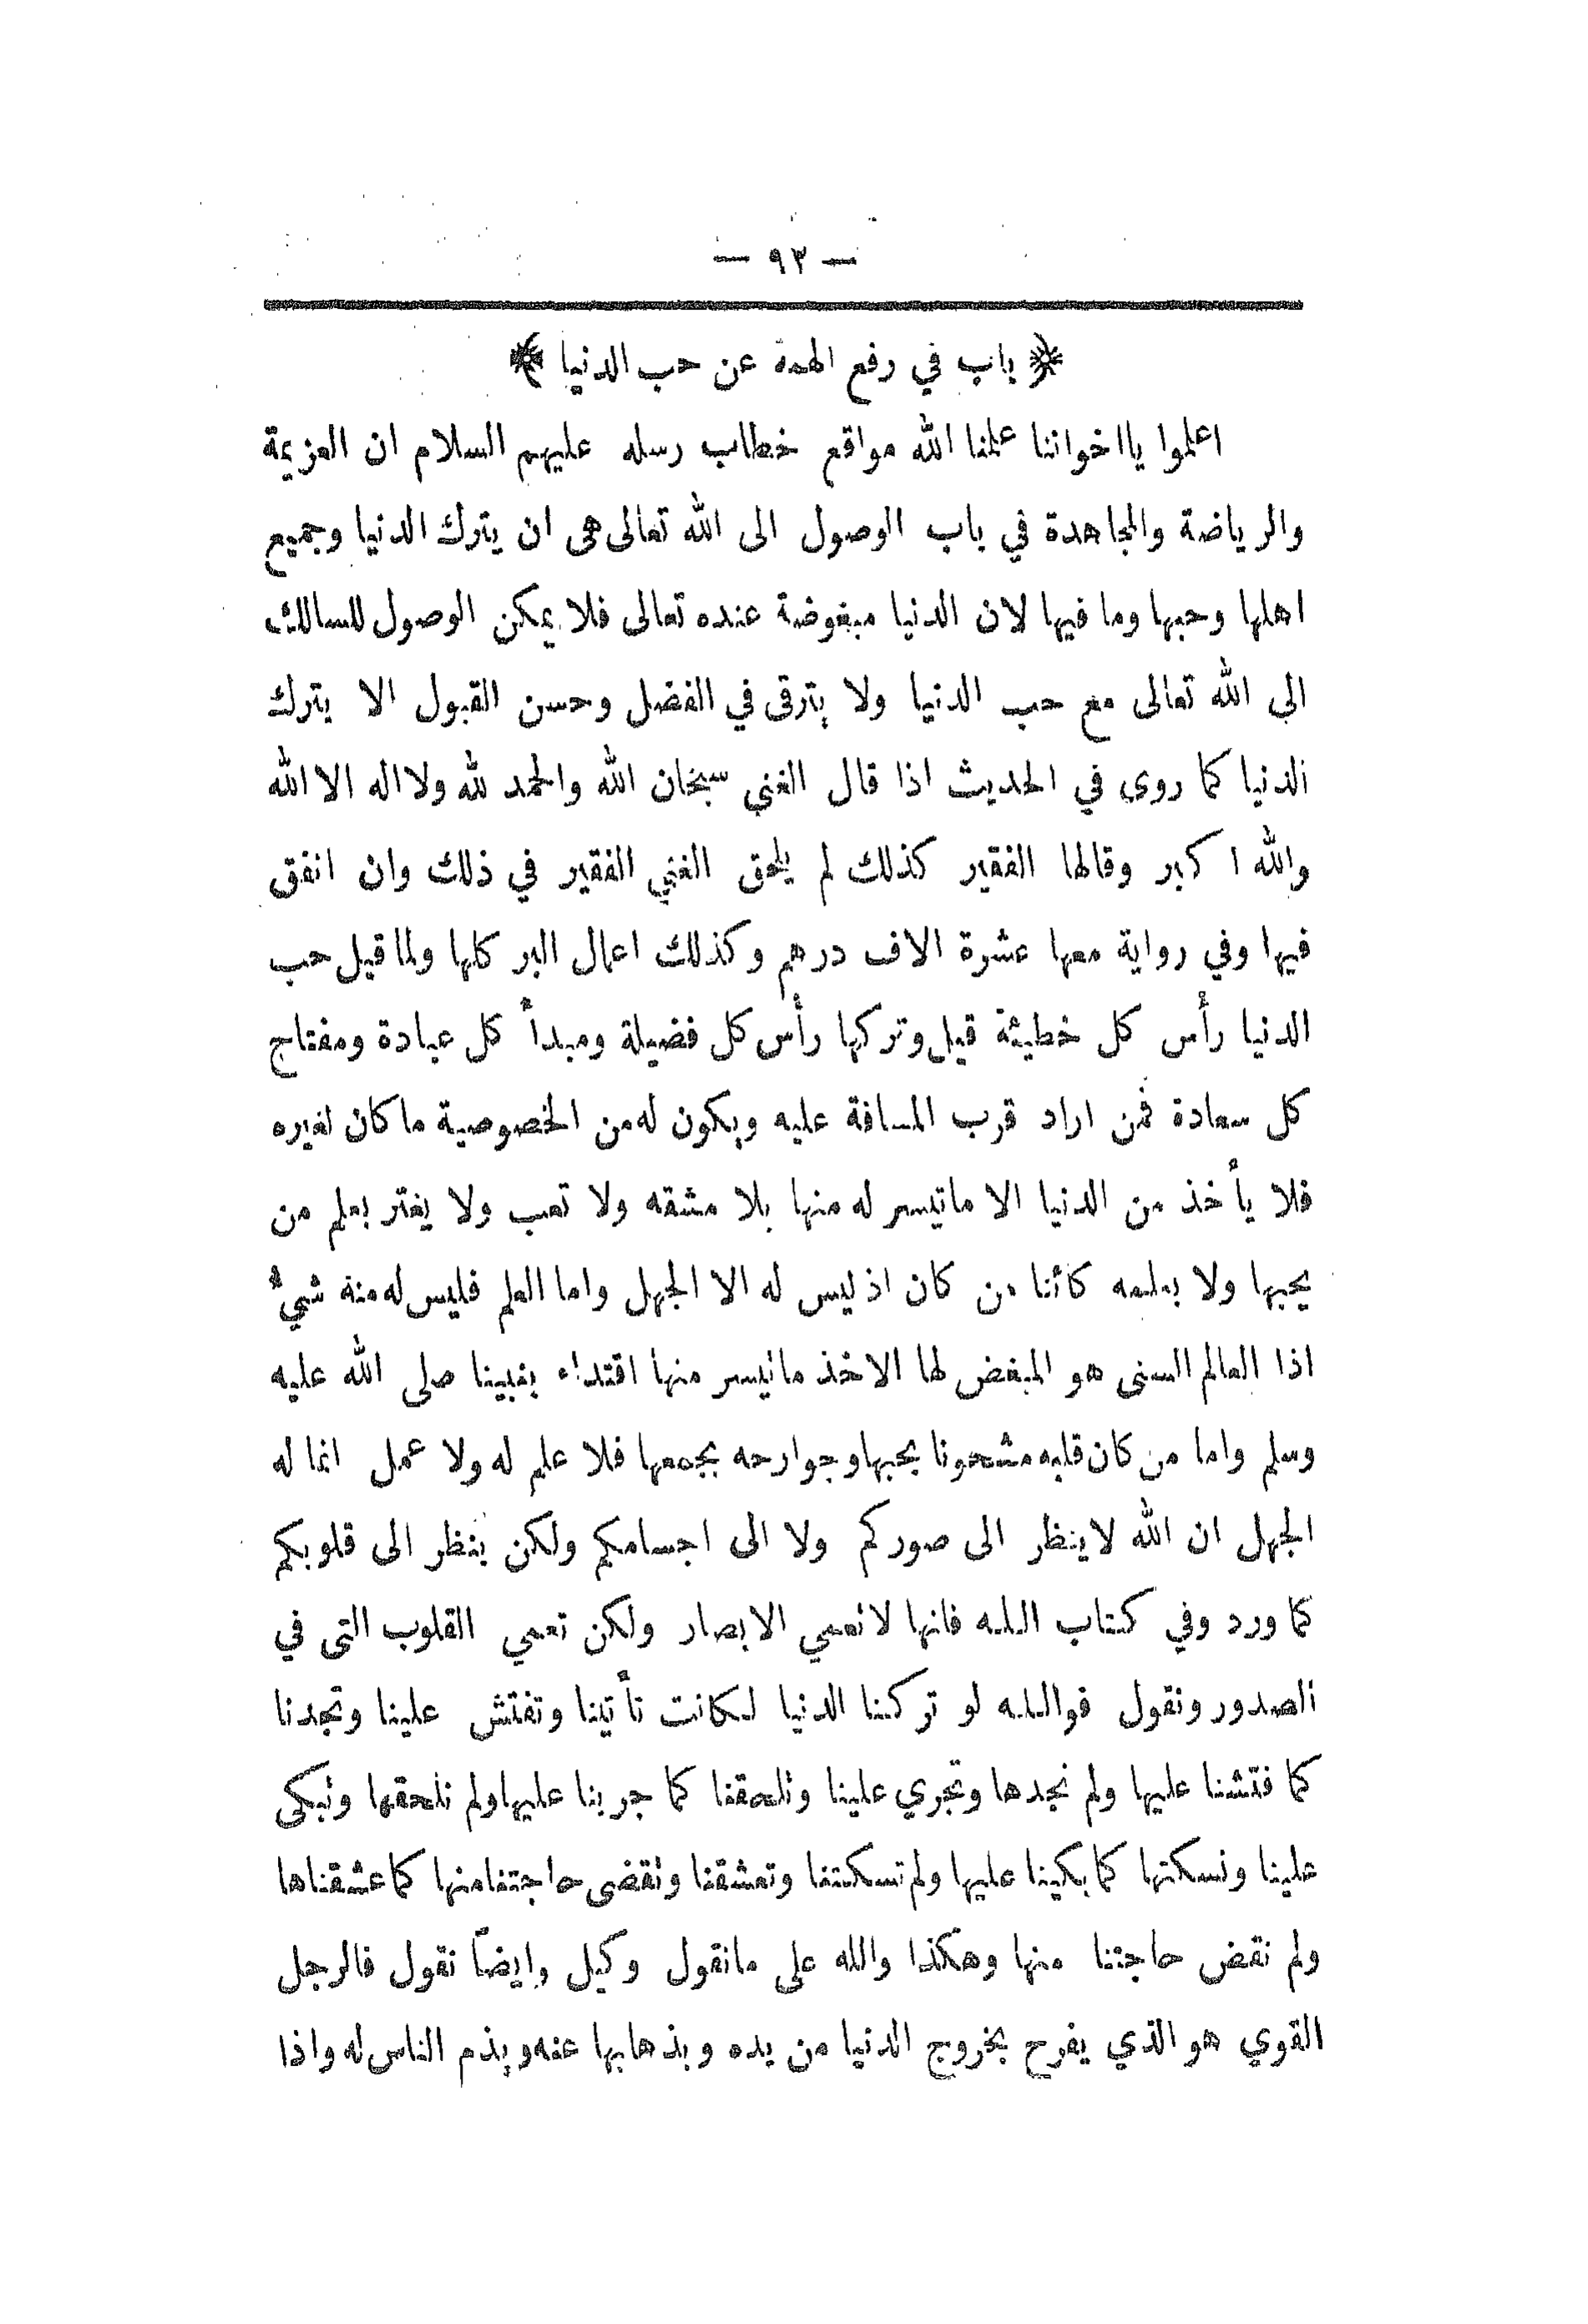 — ٩٣ —
﴿ باب في رفع الهمة عن حب الدنيا ﴾
اعلموا يااخواننا علمنا الله مواقع خطاب رسله عليهم السلام ان العزيمة
والرياضة والمجاهدة في باب الوصول الى الله تعالى هى ان يترك الدنيا وجميع
اهلها وحبها وما فيها لان الدنيا مبغوضة عنده تعالى فلا يمكن الوصول للسالك
الى الله تعالى مع حب الدنيا ولا يترقى في الفضل وحسن القبول الا يترك
الدنيا كما روى في الحديث اذا قال الغني سبحان الله والحمد لله ولااله الا الله
والله اكبر وقالها الفقير كذلك لم يلحق الغني الفقير في ذلك وان انفق
فيها وفي رواية معها عشرة الاف درهم وكذلك اعمال البر كلها ولما قيل حب
الدنيا رأس كل خطيئة قيل وتركها رأس كل فضيلة ومبدأ كل عبادة ومفتاح
كل سعادة فمن اراد قرب المسافة عليه ويكون له من الخصوصية ما كان لغيره
فلا يأخذ من الدنيا الا ماتيسر له منها بلا مشقه ولا تعب ولا يغتر بعلم من
يحبها ولا بعلمه كائنا من كان اذ ليس له الا الجهل واما العلم فليس له منة شيء
اذا العالم السنى هو المبغض لها الاخذ ماتيسر منها اقتداء بنبينا صلى الله عليه
وسلم واما من كان قلبه مشحونا بحبها وجوارحه بجمعها فلا علم له ولا عمل انما له
الجهل ان الله لاينظر الى صوركم ولا الى اجسامكم ولكن ينظر الى قلوبكم
كما ورد وفي كتاب الله فانها لاتعمي الابصار ولكن تعمي القلوب التى في
الصدور ونقول فوالله لو تركنا الدنيا لكانت تأتينا وتفتش علينا وتجدنا
كما فتشنا عليها ولم نجدها وتجري علينا وتلحقنا كما جرينا عليها ولم نلحقها وتبكى
علينا ونسكتها كما بكينا عليها ولم تسكتنا وتعشقنا وتقضى حاجتنا منها كما عشقناها
ولم نقض حاجتنا منها وهكذا والله على مانقول وكيل وايضًا نقول فالرجل
القوي هو الذي يفرح بخروج الدنيا من يده وبذهابها عنه وبذم الناس له واذا